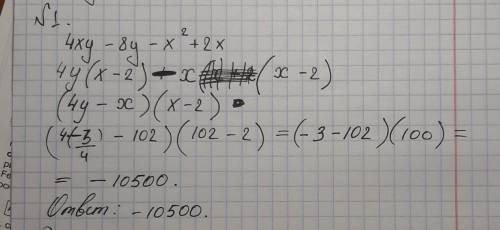 №1.
4xy - 8y - x² + 2x
4y(x - 2) - x (x - 2)
(4y - x)(x - 2)
(4(-3/4) - 102)(102 - 2) = (-3 - 102)(100) =
= -10500.
Ответ: -10500.